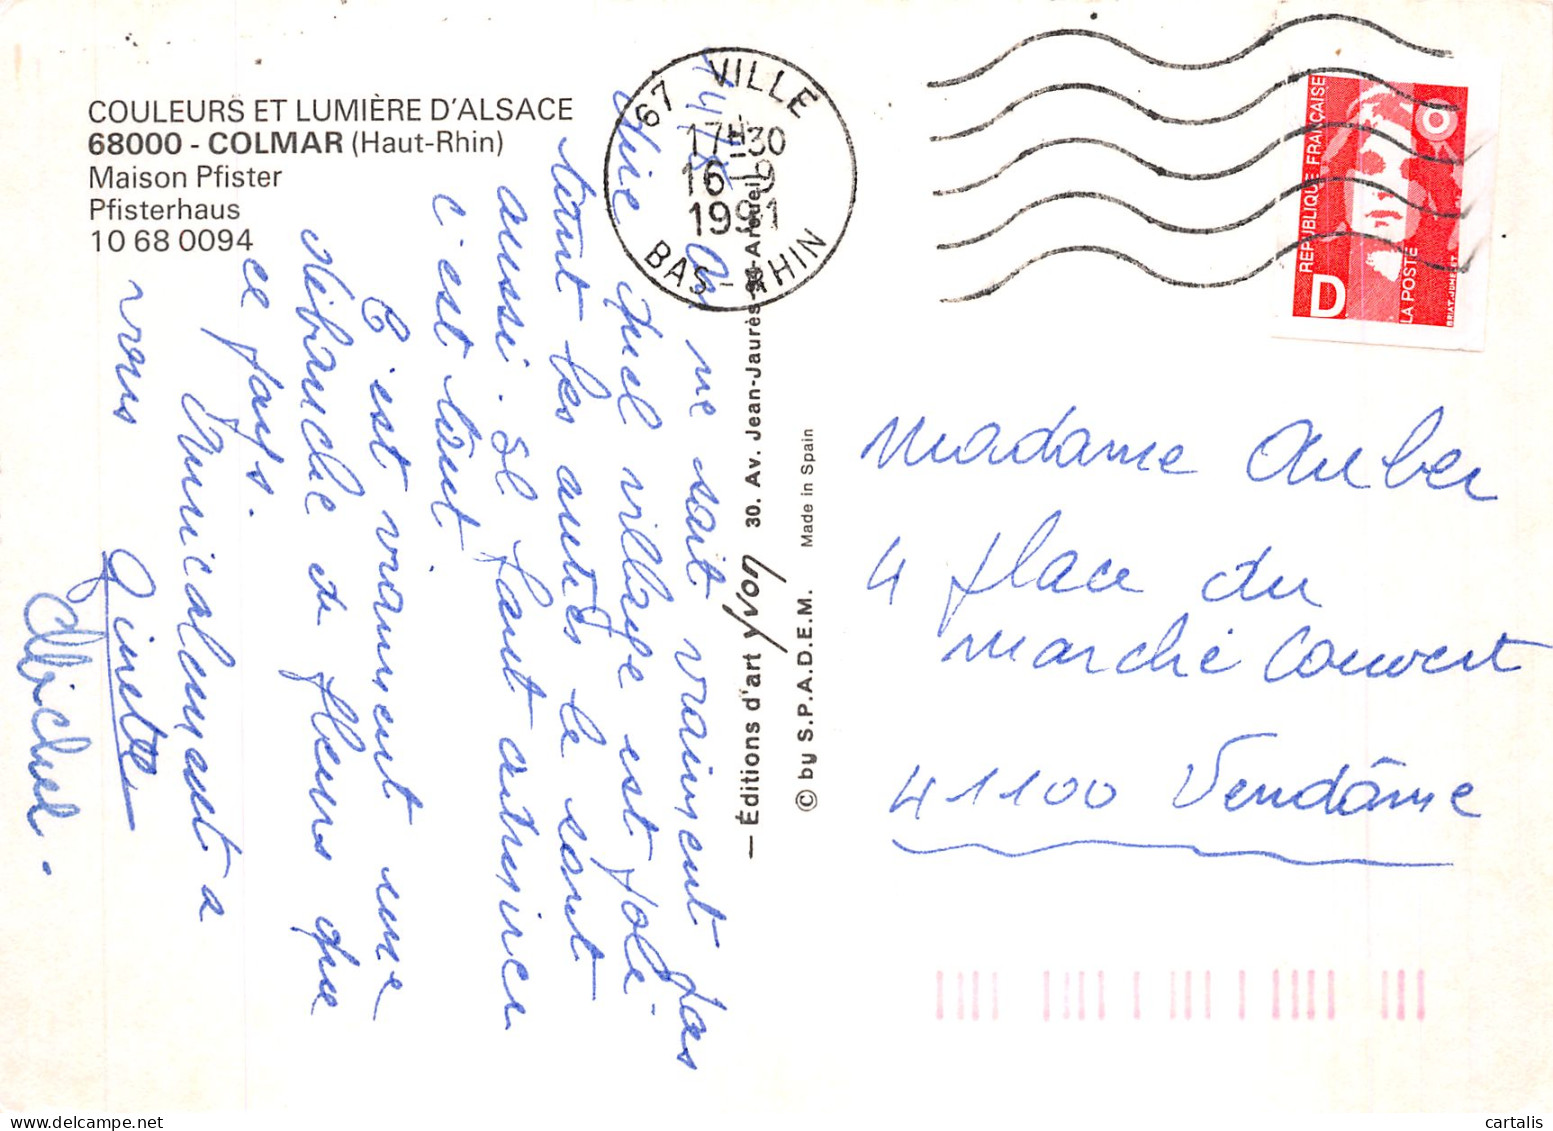 COULEURS ET LUMIÈRE D'ALSACE
68000 - COLMAR (Haut-Rhin)
Maison Pfister
Pfisterhaus
10 68 0094
67 VILLE
17H30
16-9
1991
BAS-RHIN
RÉPUBLIQUE FRANÇAISE
LA POSTE
D
BRIAT. JUMELET
On ne sait vraiment pas
dire quel village est joli
tant les autres le sont
aussi. Il faut admirer
c'est tout
C'est vraiment une
débauche de fleurs que
ce pays.
Amicalement a
vous
Ginette
Michel.
— Éditions d'art yvon 30. Av. Jean-Jaurès 94-Arcueil
© by S.P.A.D.E.M. Made in Spain
Madame Auber
4 place du
marché Couvert
41100 Vendôme
cartalis